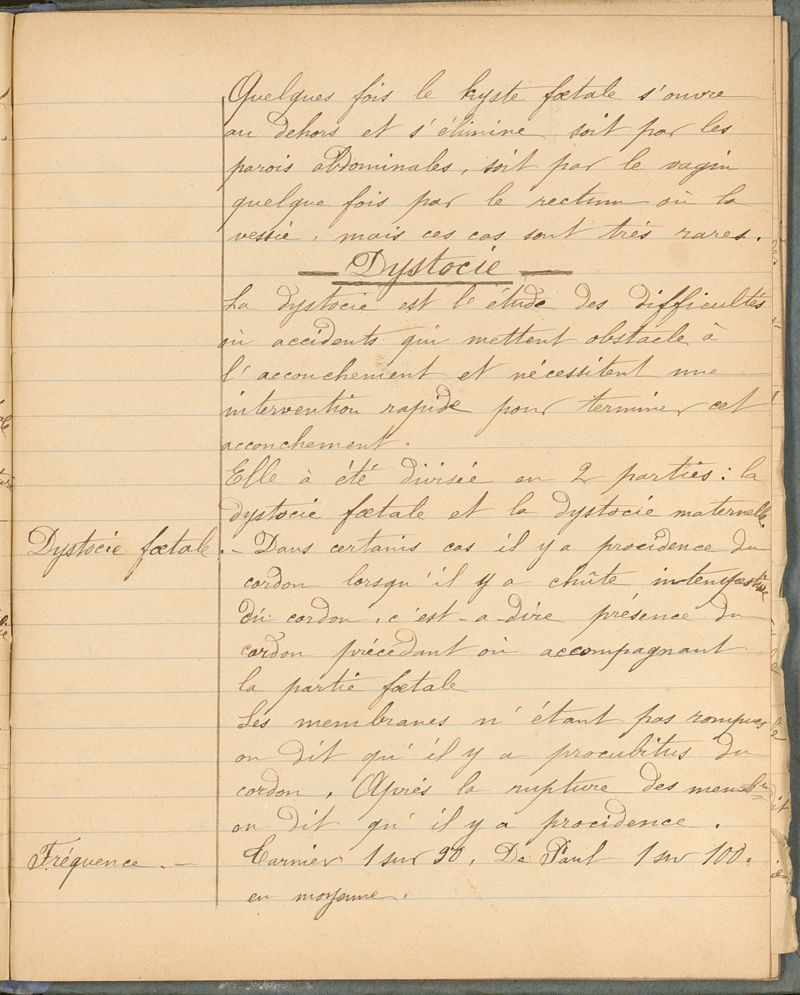 Quelques fois le kyste fœtale s'ouvre
au dehors et s'élimine soit par les
parois abdominales, soit par le vagin
quelque fois par le rectum où la
vessie, mais ces cas sont très rares.
Dystocie
La dystocie est l'étude des difficultés
où accidents qui mettent obstacle à
l'accouchement et nécessitent une
intervention rapide pour terminer cet
accouchement.
Elle à été divisée en 2 parties: la
dystocie fœtale et la dystocie maternelle.
Dystocie fœtale.- Dans certains cas il y a procidence du
cordon lorsqu'il y a chûte intempestive
du cordon, c'est-a-dire présence du
cordon précédant où accompagnant
la partie fœtale
Les membranes n'étant pas rompues
on dit qu'il y a procubitus du
cordon. Après la rupture des memb
on dit qu'il y a procidence.
Fréquence.- Tarnier 1 sur 90, De Paul 1 sur 100.
en moyenne.